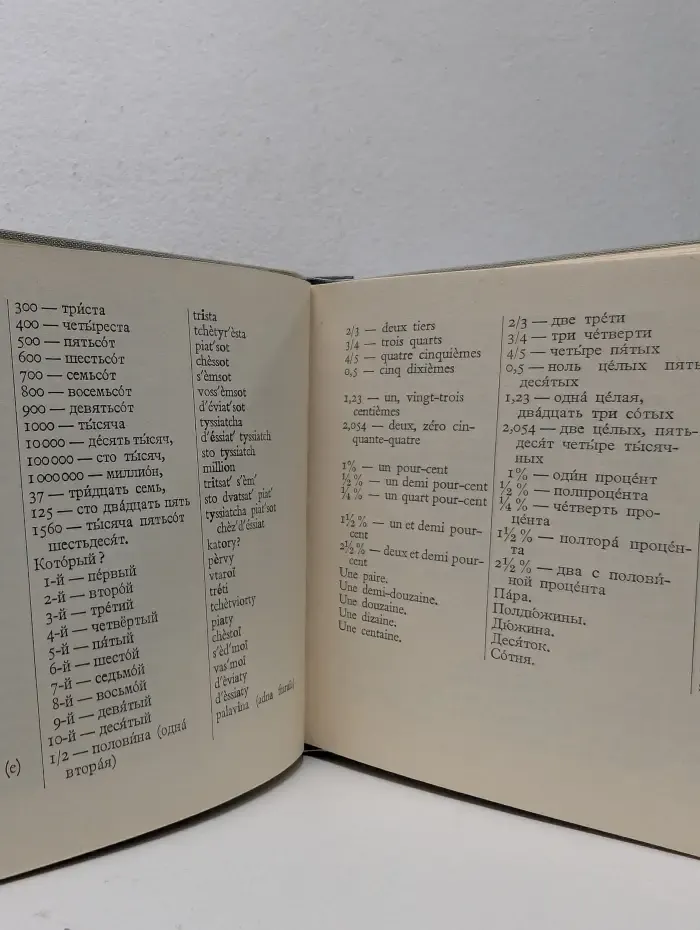 300 — три́ста
400 — четы́реста
500 — пятьсо́т
600 — шестьсо́т
700 — семьсо́т
800 — восемьсо́т
900 — девятьсо́т
1000 — ты́сяча
10000 — де́сять ты́сяч,
100000 — сто ты́сяч,
1000000 — миллио́н,
37 — три́дцать семь,
125 — сто два́дцать пять
1560 — ты́сяча пятьсо́т
шестьдеся́т.
Кото́рый?
1-й — пе́рвый
2-й — второ́й
3-й — тре́тий
4-й — четвёртый
5-й — пя́тый
6-й — шесто́й
7-й — седьмо́й
8-й — восьмо́й
9-й — девя́тый
10-й — деся́тый
(e)
1/2 — полови́на (одна́
втора́я)
trista
tchètyr'èsta
piat'sot
chèssot
s'èmsot
voss'èmsot
d'éviat'sot
tyssiatcha
d'éssiat' tyssiatch
sto tyssiatch
million
tritsat' s'èm'
sto dvatsat' piat'
tyssiatcha piat'sot
chèz'd'éssiat
katory?
pèrvy
vtaroï
tréti
tchètviorty
piaty
chèstoï
s'èd'moï
vas'moï
d'éviaty
d'èssiaty
palavina (adna
2/3 — deux tiers
3/4 — trois quarts
4/5 — quatre cinquièmes
0,5 — cinq dixièmes
1,23 — un, vingt-trois
centièmes
2,054 — deux, zéro cin-
quante-quatre
1% — un pour-cent
½% — un demi pour-cent
¼% — un quart pour-cent
1½% — un et demi pour-
cent
2½% — deux et demi pour-
cent
Une paire.
Une demi-douzaine.
Une douzaine.
Une dizaine.
Une centaine.
2/3 — две тре́ти
3/4 — три че́тверти
4/5 — четы́ре пя́тых
0,5 — ноль це́лых пять
деся́тых
1,23 — одна́ це́лая,
два́дцать три со́тых
2,054 — две це́лых, пять-
деся́т четы́ре ты́сяч-
ных
1% — оди́н проце́нт
½% — полпроце́нта
¼% — че́тверть про-
це́нта
1½% — полтора́ проце́н-
та
2½% — два с полови́-
ной проце́нта
Па́ра.
Полдю́жины.
Дю́жина.
Деся́ток.
Со́тня.